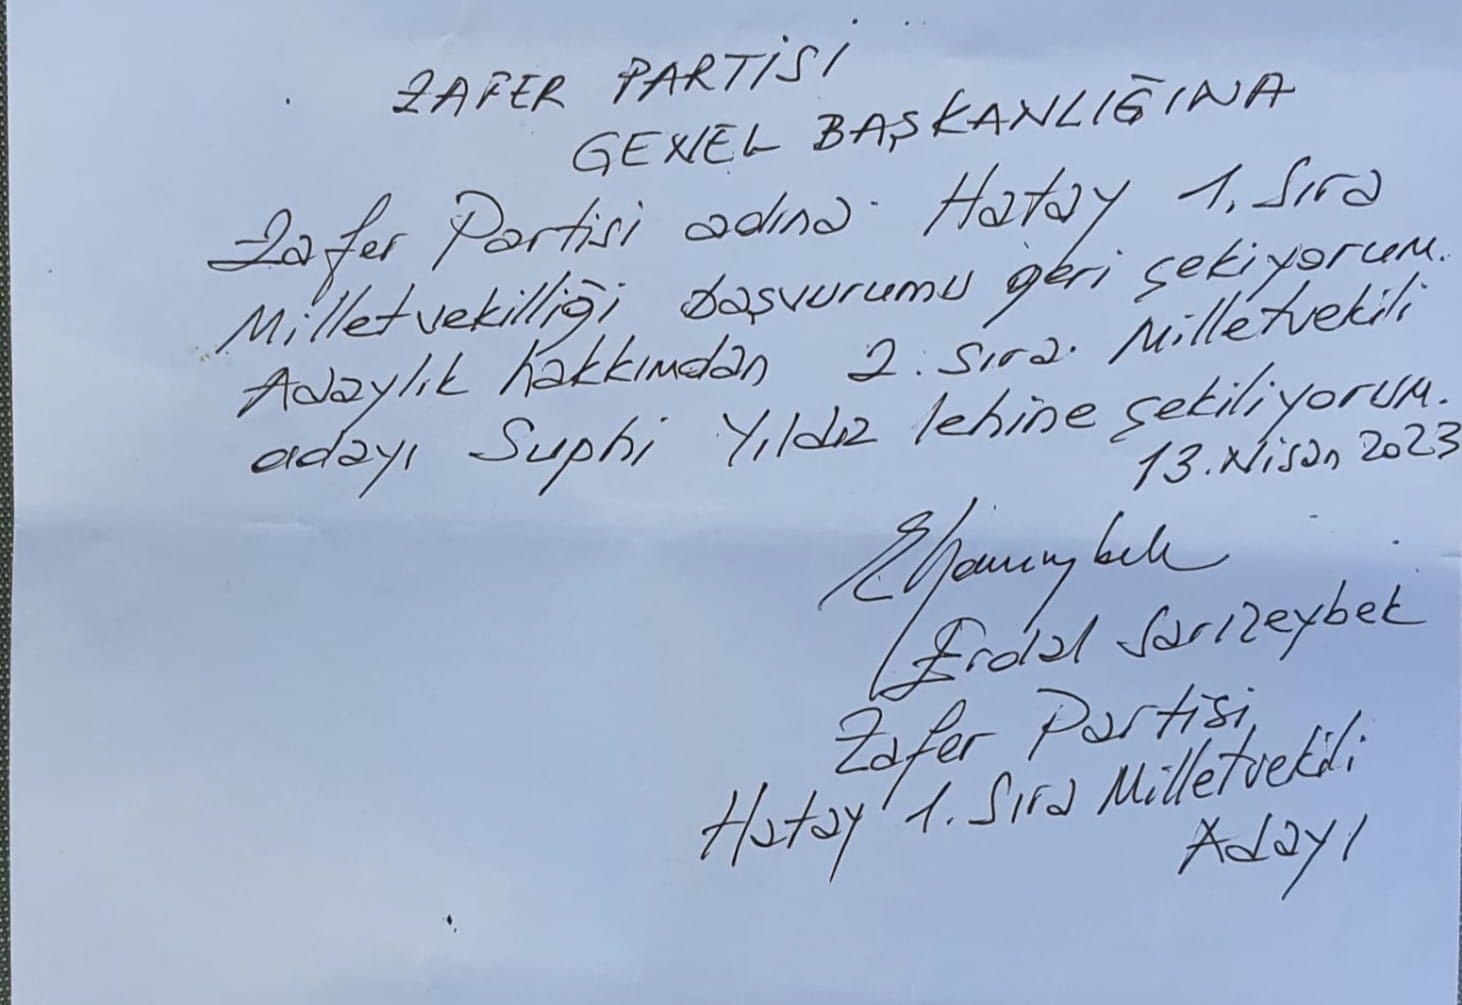 ZAFER PARTİSİ
GENEL BAŞKANLIĞINA
Zafer Partisi adına Hatay 1. Sıra
Milletvekilliği başvurumu geri çekiyorum.
Adaylık hakkımdan 2. Sıra Milletvekili
adayı Suphi Yıldız lehine çekiliyorum.
13.Nisan 2023
Erdal Sarızeybek
Zafer Partisi
Hatay 1. Sıra Milletvekili
Adayı